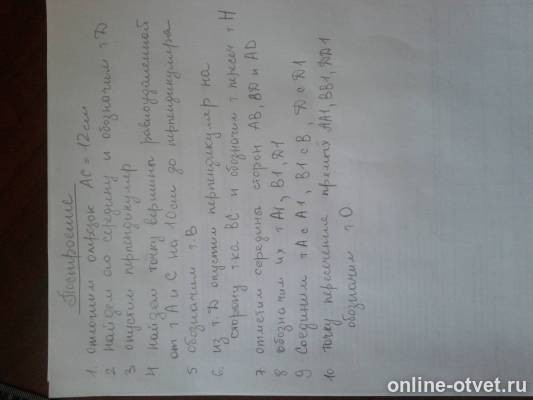 Построение
1. отложим отрезок АС = 12 см
2 найдем его середину и обозначим т. D
3 опустим перпендикуляр
4 найдем точку вершины равноудаленной
от т А и С на 10 см до перпендикуляра
5 обозначим т. В
6. из т. D опустим перпендикуляр на
сторону т-ка ВС и обозначим т пересеч т Н
7 отметим середины сторон АВ, ВD и АD
8 обозначим их т А1, В1, D1
9 Соединим т А с А1, В1 с В, D с D1
10 точку пересечения прямых АА1, ВВ1, DD1
обозначим т О
online-otvet.ru